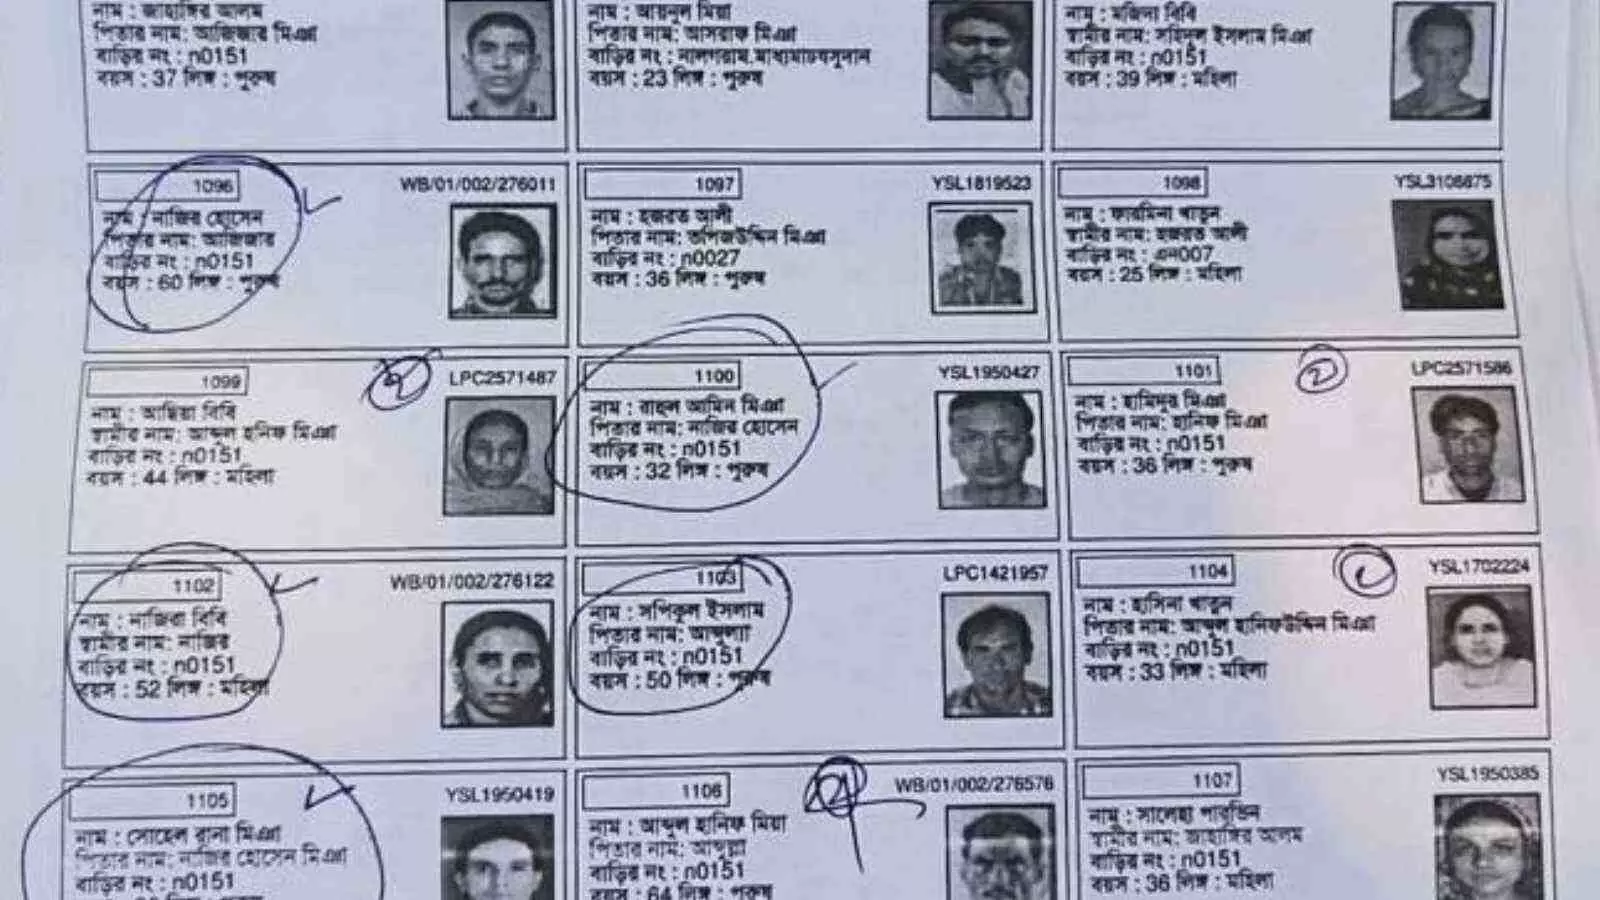 নাম : জাহাঙ্গির আলম
পিতার নাম: আজিজার মিঞা
বাড়ির নং : n0151
বয়স : 37 লিঙ্গ : পুরুষ
নাম : আয়নুল মিয়া
পিতার নাম: আসরাফ মিঞা
বাড়ির নং :
বয়স : 23 লিঙ্গ : পুরুষ
নাম : মজিনা বিবি
স্বামীর নাম: সহিদুল ইসলাম মিঞা
বাড়ির নং : n0151
বয়স : 39 লিঙ্গ : মহিলা
1096 WB/01/002/276011
নাম : নাজির হোসেন
পিতার নাম: আজিজার
বাড়ির নং : n0151
বয়স : 60 লিঙ্গ : পুরুষ
1097 YSL1819523
নাম : হজরত আলী
পিতার নাম: তপিজউদ্দিন মিঞা
বাড়ির নং : n0027
বয়স : 36 লিঙ্গ : পুরুষ
1098 YSL3106875
নাম : ফারমিনা খাতুন
স্বামীর নাম: হজরত আলী
বাড়ির নং : এন007
বয়স : 25 লিঙ্গ : মহিলা
1099 LPC2571487
নাম : আছিয়া বিবি
স্বামীর নাম: আব্দুল হনিফ মিঞা
বাড়ির নং : n0151
বয়স : 44 লিঙ্গ : মহিলা
1100 YSL1950427
নাম : রাহুল আমিন মিঞা
পিতার নাম: নাজির হোসেন
বাড়ির নং : n0151
বয়স : 32 লিঙ্গ : পুরুষ
1101 LPC2571586
নাম : হামিদুর মিঞা
পিতার নাম: হানিফ মিঞা
বাড়ির নং : n0151
বয়স : 36 লিঙ্গ : পুরুষ
1102 WB/01/002/276122
নাম : নাজিরা বিবি
স্বামীর নাম: নাজির
বাড়ির নং : n0151
বয়স : 52 লিঙ্গ : মহিলা
1103 LPC1421957
নাম : সপিকুল ইসলাম
পিতার নাম: আব্দুল্যা
বাড়ির নং : n0151
বয়স : 50 লিঙ্গ : পুরুষ
1104 YSL1702224
নাম : হাসিনা খাতুন
পিতার নাম: আব্দুল হানিফউদ্দিন মিঞা
বাড়ির নং : n0151
বয়স : 33 লিঙ্গ : মহিলা
1105 YSL1950419
নাম : সোহেল রানা মিঞা
পিতার নাম: নাজির হোসেন মিঞা
বাড়ির নং : n0151
1106 WB/01/002/276576
নাম : আব্দুল হানিফ মিয়া
পিতার নাম: আব্দুল্লা
বাড়ির নং : n0151
বয়স : 64 লিঙ্গ : পুরুষ
1107 YSL1950385
নাম : সালেহা পারভিন
স্বামীর নাম: জাহাঙ্গির আলম
বাড়ির নং : n0151
বয়স : 36 লিঙ্গ : মহিলা